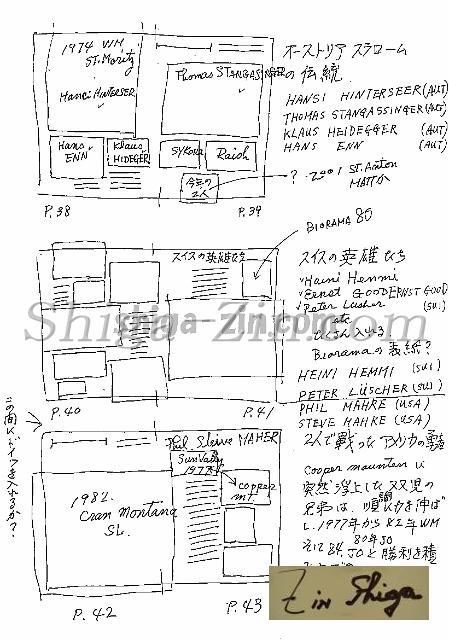 1974 WM.
ST. Moritz
Hansi HINTERSEER
Thomas STANGASSINGER
Hans ENN
Klaus HIDEGGER
SYKORA
Raich
今年の
2人
P.38
P.39
オーストリア スラローム
の伝統
HANSI HINTERSEER (AUT)
THOMAS STANGASSINGER (AUT)
KLAUS HEIDEGGER (AUT)
HANS ENN (AUT)
? 2001 ST. Anton
MATTか
BIORAMA 80
スイスの英雄たち
P.40
P.41
スイスの英雄たち
Haini Hemmi
Ernst GOOD ERNST GOOD
Peter Lusher (SUI)
Bioramaの表紙?
HEINI HEMMI (SUI)
PETER LÜSCHER (SUI)
PHIL MAHRE (USA)
STEVE MAHRE (USA)
2人で戦ったアメリカの
この間に
ドイツを入れるか?
Phil Steeve MAHER
Sun Valley
1977
copper
mt.
1982.
Cran Montana
SL.
P.42
P.43
Cooper mounten に
突然浮上した双児の
兄弟は、順調に力を伸ば
し、1977年から82年WM
そして84.JOと勝利を積
80年JO
Shiga-Zin.com
Z in Shiga